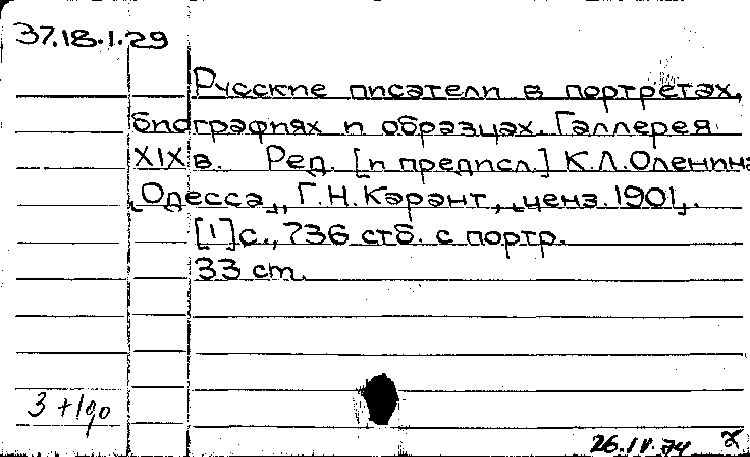 37.18.1.29
Русские писатели в портретах,
биографиях и образцах. Галлерея
XIX в. Ред. [и предисл.] К.Л.Оленина
Одесса, Г.Н.Карант, ценз. 1901.
[1] с., 736 стб. с портр.
33 cm.
3 +1
26.IV.74